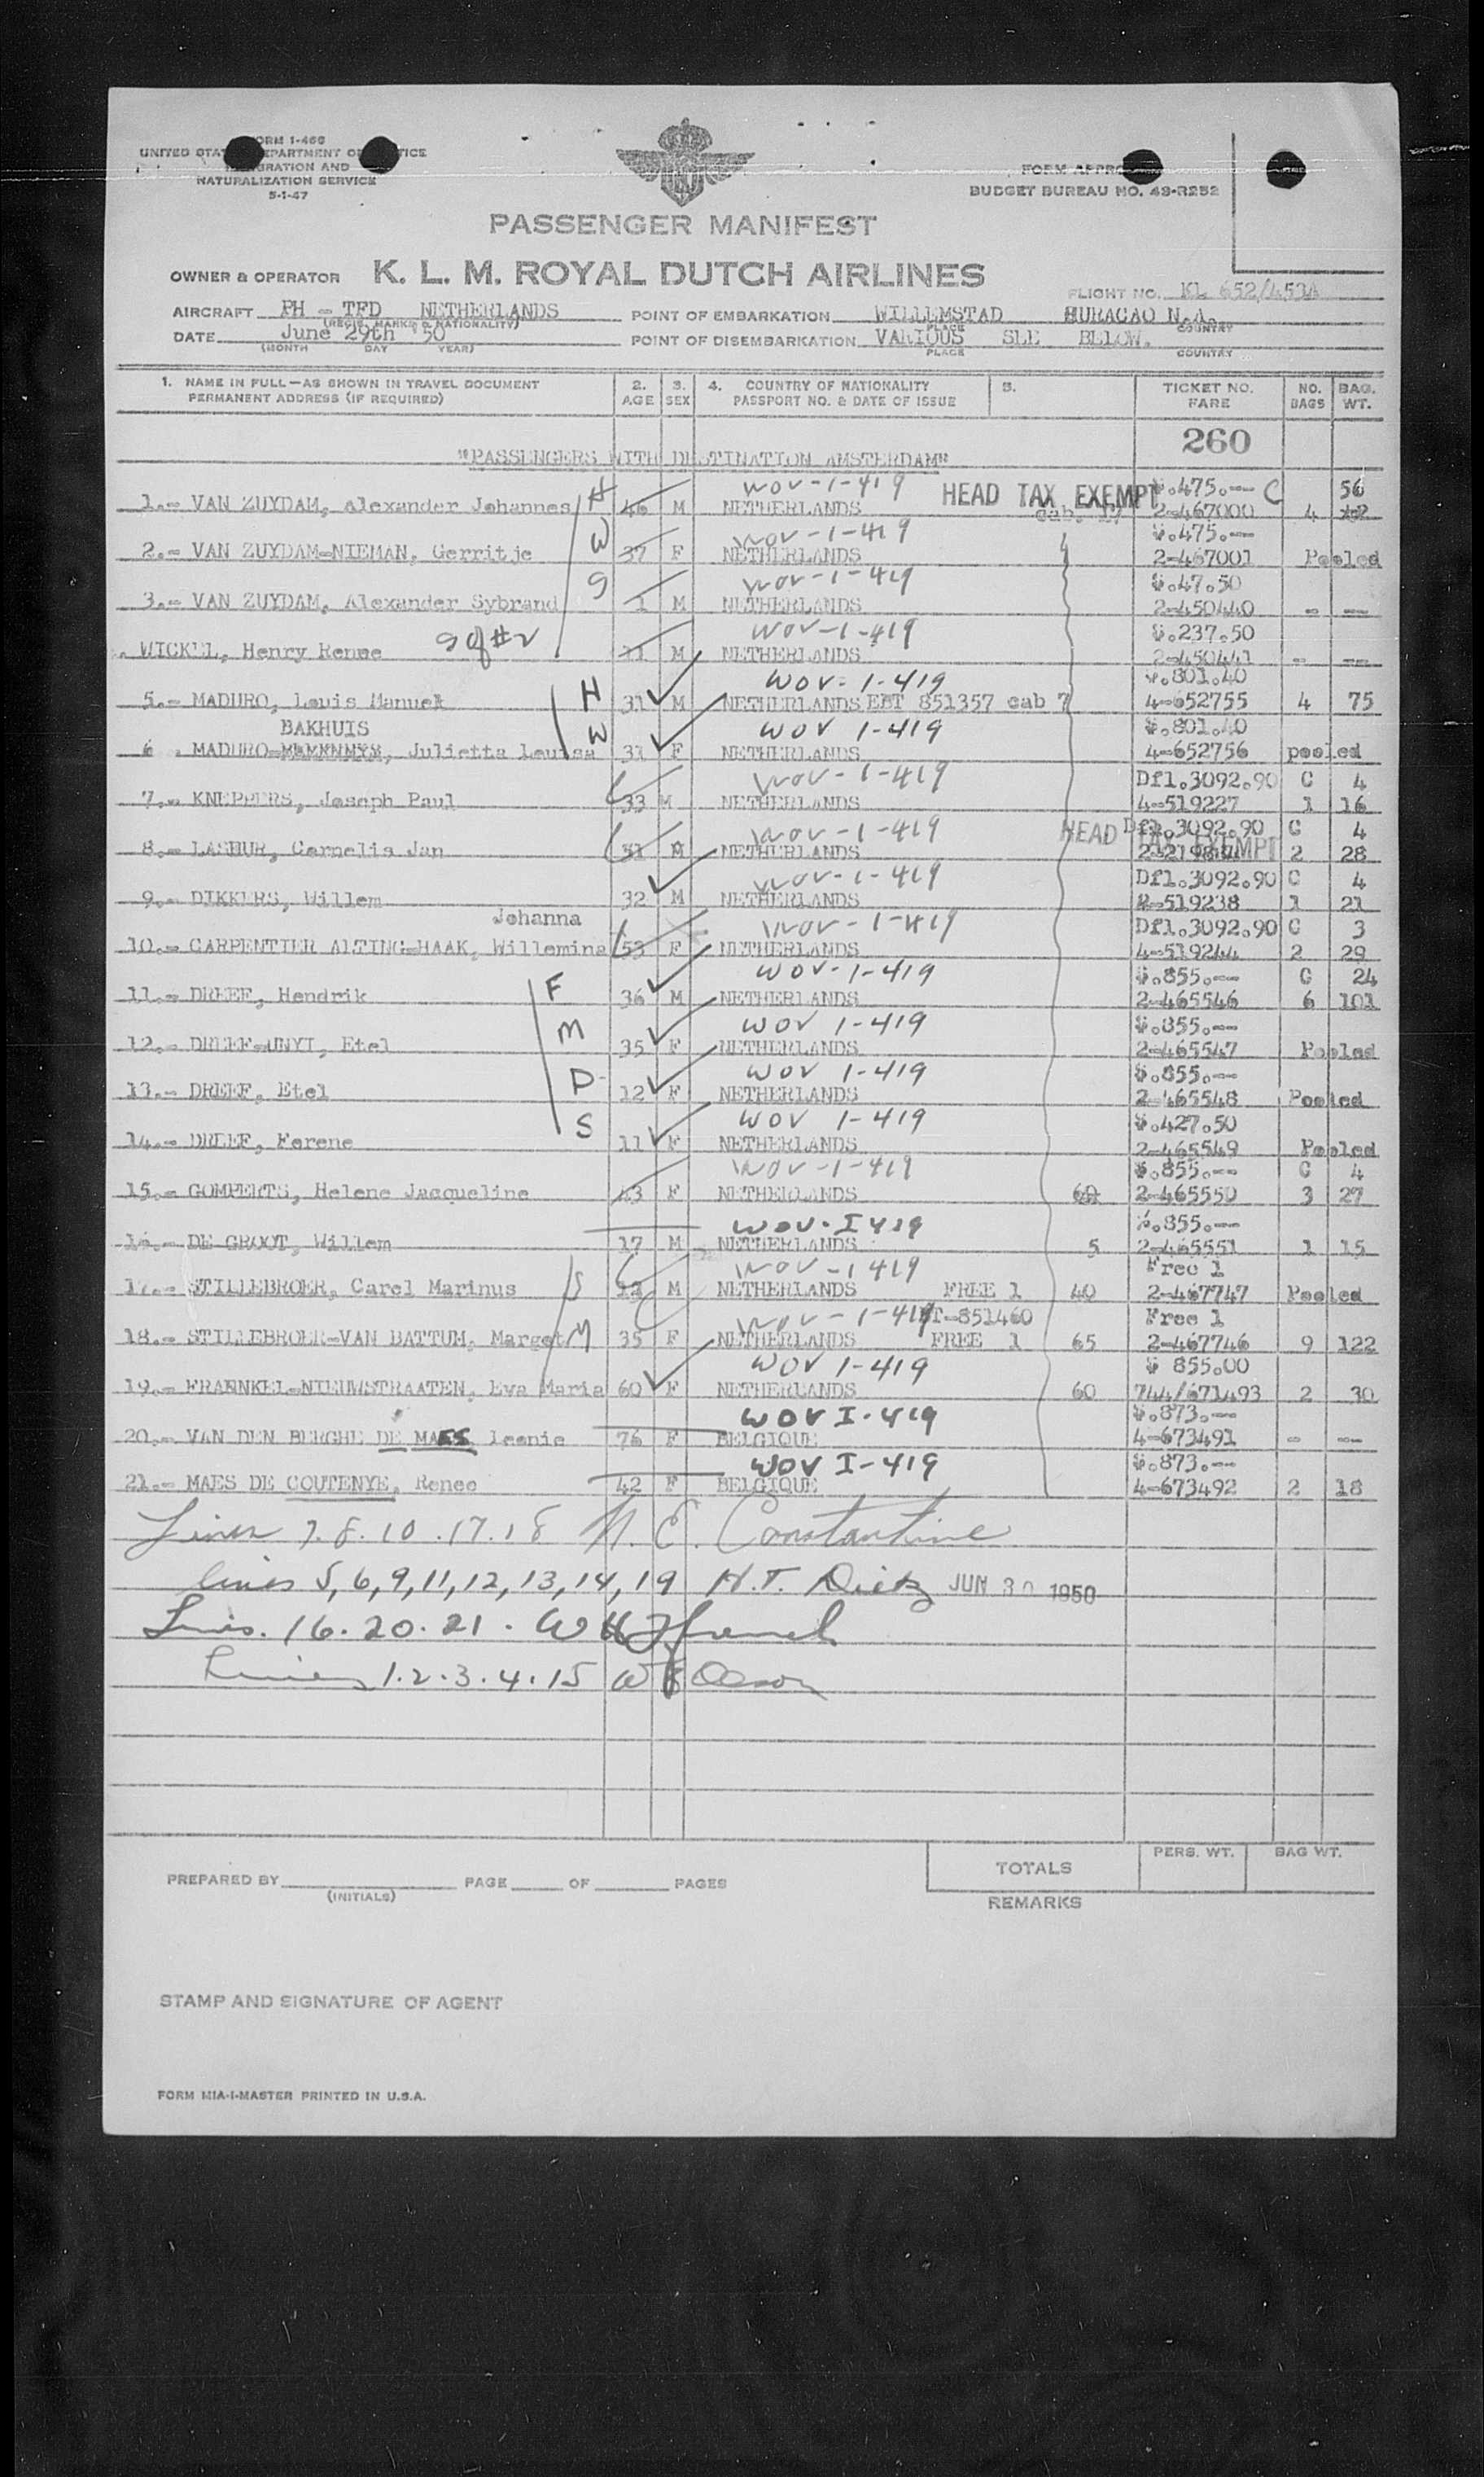 FORM 1-466
UNITED STATES DEPARTMENT OF JUSTICE
IMMIGRATION AND
NATURALIZATION SERVICE
5-1-47
FORM APPROVED
BUDGET BUREAU NO. 43-R252
PASSENGER MANIFEST
OWNER & OPERATOR K. L. M. ROYAL DUTCH AIRLINES
FLIGHT NO. KL 652/453A
AIRCRAFT PH - TFD NETHERLANDS POINT OF EMBARKATION WILLEMSTAD HURACAO N.A.
(REGIS. MARKS & NATIONALITY) PLACE COUNTRY
DATE June 29th '50 POINT OF DISEMBARKATION VARIOUS SEE BELOW.
(MONTH DAY YEAR) PLACE COUNTRY
1. NAME IN FULL—AS SHOWN IN TRAVEL DOCUMENT 2. 3. 4. COUNTRY OF NATIONALITY 5. TICKET NO. NO. BAG.
PERMANENT ADDRESS (IF REQUIRED) AGE SEX PASSPORT NO. & DATE OF ISSUE FARE BAGS WT.
260
"PASSENGERS WITH DESTINATION AMSTERDAM"
WOV-1-419 HEAD TAX EXEMPT $.475.-- C 56
1.- VAN ZUYDAM, Alexander Johannes H 46 M NETHERLANDS cab. 2-467000 4
WOV-1-419 $.475.--
2.- VAN ZUYDAM-NIEMAN, Gerritje W 37 F NETHERLANDS 2-467001 Pooled
WOV-1-419 $.47.50
3.- VAN ZUYDAM, Alexander Sybrand S 1 M NETHERLANDS 2-450440 - --
WOV-1-419 $.237.50
. WICKEL, Henry Renee S of #2 11 M NETHERLANDS 2-450441 - --
WOV-1-419 $.801.40
5.- MADURO, Louis Manuel H 31 M NETHERLANDS EBT 851357 cab 7 4-652755 4 75
BAKHUIS WOV 1-419 $.801.40
6 . MADURO-, Julietta Louisa W 31 F NETHERLANDS 4-652756 pooled
WOV-1-419 Dfl.3092.90 C 4
7.- KNEPPERS, Joseph Paul 33 M NETHERLANDS 4-519227 1 16
WOV-1-419 HEAD TAX EXEMPT Dfl.3092.90 C 4
8.- LASHUR, Cornelis Jan 51 M NETHERLANDS 2 28
WOV-1-419 Dfl.3092.90 C 4
9.- DIKKERS, Willem 32 M NETHERLANDS 2-519238 1 21
Johanna WOV-1-419 Dfl.3092.90 C 3
10.- CARPENTIER ALTING-HAAK, Willemina 53 F NETHERLANDS 4-519244 2 29
WOV-1-419 $.855.-- C 24
11.- DREEF, Hendrik F 36 M NETHERLANDS 2-465546 6 101
WOV 1-419 $.855.--
12.- DREEF-UNYI, Etel M 35 F NETHERLANDS 2-465547 Pooled
WOV 1-419 $.855.--
13.- DREEF, Etel D 12 F NETHERLANDS 2-465548 Pooled
WOV 1-419 $.427.50
14.- DREEF, Ferene S 11 F NETHERLANDS 2-465549 Pooled
WOV-1-419 $.855.-- C 4
15.- GOMPERTS, Helene Jacqueline 43 F NETHERLANDS 60 2-465550 3 27
WOV-I 419 $.855.--
16.- DE GROOT, Willem 17 M NETHERLANDS 5 2-465551 1 15
WOV-1 419 Free 1
17.- STILLEBROER, Carel Marinus S 12 M NETHERLANDS FREE 1 40 2-467747 Pooled
WOV-1-419 T-851460 Free 1
18.- STILLEBROER-VAN BATTUM, Margot M 35 F NETHERLANDS FREE 1 65 2-467746 9 122
WOV 1-419 $ 855.00
19.- FRAENKEL-NIEUWSTRAATEN, Eva Maria 60 F NETHERLANDS 60 744/671493 2 30
WOV I-419 $.873.--
20.- VAN DEN BERGHE DE MAES leonie 76 F BELGIQUE 4-673491 - --
WOV I-419 $.873.--
21.- MAES DE COUTENYE, Renee 42 F BELGIQUE 4-673492 2 18
Lines 7.8.10.17.18 N. E. Constantine
lines 5,6,9,11,12,13,14,19 H.T. Dietz JUN 30 1950
Lines. 16.20.21.
Lines 1.2.3.4.15 Olson
PREPARED BY PAGE OF PAGES
(INITIALS)
TOTALS PERS. WT. BAG WT.
REMARKS
STAMP AND SIGNATURE OF AGENT
FORM MIA-I-MASTER PRINTED IN U.S.A.